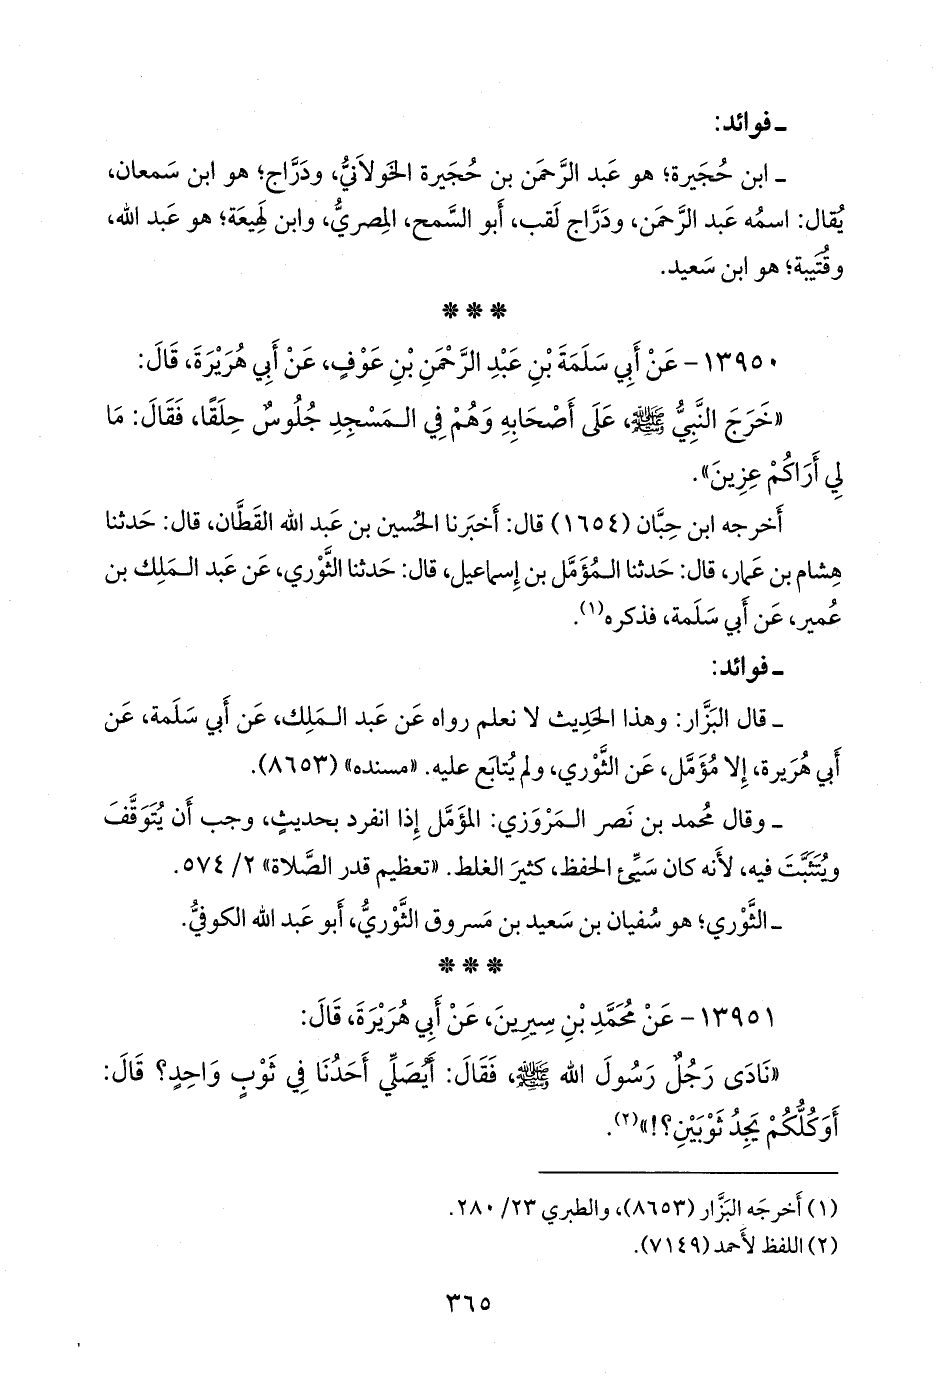 ـ فوائد:
ـ ابن حُجَيرة؛ هو عَبد الرَّحمَن بن حُجَيرة الخَولاَنيُّ، ودَرَّاج؛ هو ابن سَمعان،
يُقال: اسمُه عَبد الرَّحمَن، ودَرَّاج لَقب، أَبو السَّمح، المِصريُّ، وابن لَهِيعَة؛ هو عَبد الله،
وقُتَيبة؛ هو ابن سَعيد.
* * *
١٣٩٥٠- عَنْ أَبِي سَلَمَةَ بْنِ عَبْدِ الرَّحْمَنِ بْنِ عَوْفٍ، عَنْ أَبِي هُرَيْرَةَ، قَالَ:
«خَرَجَ النَّبِيُّ ﷺ، عَلَى أَصْحَابِهِ وَهُمْ فِي الـمَسْجِدِ جُلُوسٌ حِلَقًا، فَقَالَ: مَا
لِي أَرَاكُمْ عِزِينَ».
أَخرجه ابن حِبَّان (١٦٥٤) قال: أَخبَرنا الحُسين بن عَبد الله القَطَّان، قال: حَدثنا
هِشام بن عَمار، قال: حَدثنا الـمُؤَمَّل بن إِسماعيل، قال: حَدثنا الثَّوْري، عَن عَبد الـمَلِك بن
عُمير، عَن أَبي سَلَمة، فذكره(١).
ـ فوائد:
ـ قال البَزَّار: وهذا الحَدِيث لا نعلم رواه عَن عَبد الـمَلِك، عَن أَبي سَلَمة، عَن
أَبي هُرَيرة، إِلا مُؤَمَّل، عَن الثَّوري، ولم يُتابَع عليه. «مسنده» (٨٦٥٣).
ـ وقال محُمد بن نَصر الـمَرْوَزي: المُؤَمَّل إِذا انفرد بحَديثٍ، وجب أَن يُتَوَقَّفَ
ويُتَثَبَّتَ فيه، لأَنه كان سَيِّئ الحفظ، كثيرَ الغلط. «تعظيم قدر الصَّلاة» ٢/ ٥٧٤.
ـ الثَّوْري؛ هو سُفيان بن سَعيد بن مَسروق الثَّوْريُّ، أَبو عَبد الله الكوفيُّ.
* * *
١٣٩٥١- عَنْ مُحَمَّدِ بْنِ سِيرِينَ، عَنْ أَبِي هُرَيْرَةَ، قَالَ:
«نَادَى رَجُلٌ رَسُولَ الله ﷺ، فَقَالَ: أَيُصَلِّي أَحَدُنَا فِي ثَوْبٍ وَاحِدٍ؟ قَالَ:
أَوَكُلُّكُمْ يَجِدُ ثَوْبَيْنِ؟!»(٢).
(١) أَخرجَه البَزَّار (٨٦٥٣)، والطبري ٢٣/ ٢٨٠.
(٢) اللفظ لأَحمد (٧١٤٩).
٣٦٥